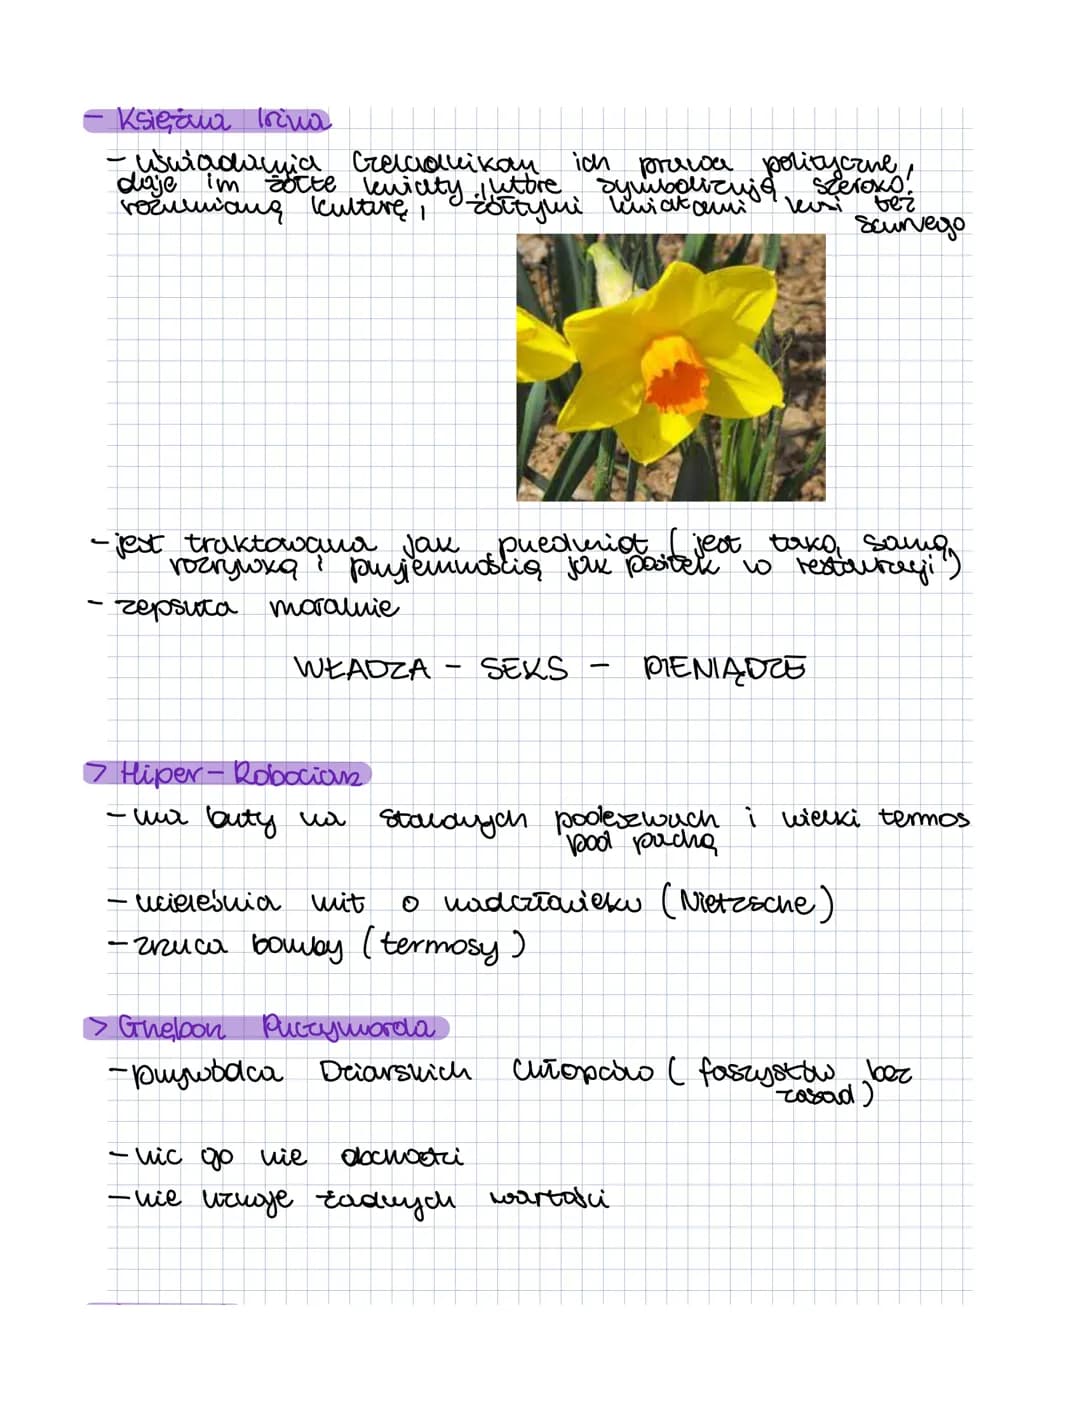 - Księżna Irina
- uświadamia Czeladnikom ich prawa polityczne,
daje im żółte kwiaty, które symbolizują szeroko
rozumianą kulturę, żółtymi kwiatami
bez
jest traktowana jak przedmiot (jest taką samą
rozrywką i przyjemnością jak posiłek w restauracji)
- zepsuta moralnie
WŁADZA - SEKS - PIENIĄDZE
> Hiper-Robociarz
- ma buty na stalowych podeszwach i wielki termos
pod pachą
- ucieleśnia mit o nadczłowieku (Nietzsche)
- zrzuca bomby (termosy)
> Gnębon Puczymorda
- przywódca Dziarskich Chłopców (faszystów bez
zasad)
- nic go nie obchodzi
- nie uznaje żadnych wartości